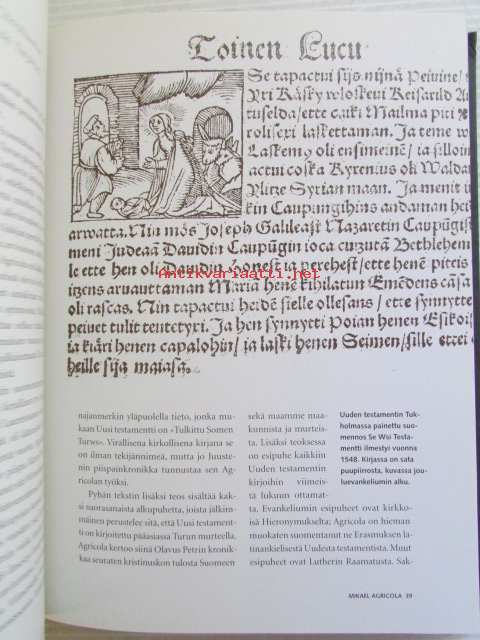 Toinen Lucu
Se tapactui sijs nijnä Peiuine/
Ytzi Käsky wloskeui Keisarild A
tuselda/ette caiki Mailma piti
rolisexi laskettaman. Ja teme w
Laskemꝯ oli ensimeinē/ia silloin
actui coska Kyrenius oli Waldan
Ylitze Syrian maan. Ja menit
kin Caupungihins andaman hed
arwatta. Nin mös Joseph Galileast Nazaretin Caupūgist
meni Judeaā Dauidin Caupūgin ioca cutzutā Bethlehem
le ette hen oli Dauidin honest ia perehest/ette henē piteis
itzens aruauttaman Maria henē kihlatun Emēdens cāsa
oli rascas. Nin tapactui heidē sielle ollesans/ette synnytte
peiuet tulit teutetyxi. Ja hen synnytti Poian henen Esikoi
ia kääri henen capalohin/ia laski henen Seimen/sille ettei
heille sija maiasa.
antikvariaatti.net
najanmerkin yläpuolella tieto, jonka mu-
kaan Uusi testamentti on »Tulkittu Somen
Turws». Virallisena kirkollisena kirjana se
on ilman tekijännimeä, mutta jo Juuste-
nin piispainkronikka tunnustaa sen Ag-
ricolan työksi.
Pyhän tekstin lisäksi teos sisältää kak-
si suorasanaista alkupuhetta, joista jälkim-
mäinen perustelee sitä, että Uusi testament-
ti on kirjoitettu pääasiassa Turun murteella.
Agricola kertoo siinä Olavus Petrin kronik-
kaa seuraten kristinuskon tulosta Suomeen
sekä maamme maa-
kunnista ja murteis-
ta. Lisäksi teoksessa
on esipuhe kaikkiin
Uuden testamentin
kirjoihin viimeis-
tä lukuun ottamat-
ta. Evankeliumin esipuheet ovat kirkkoi-
sä Hieronymukselta; Agricola on hieman
muokaten suomentanut ne Erasmuksen la-
tinankielisestä Uudesta testamentista. Muut
esipuheet ovat Lutherin Raamatusta. Sak-
Uuden testamentin Tuk-
holmassa painettu suo-
mennos Se Wsi Testa-
mentti ilmestyi vuonna
1548. Kirjassa on sata
puupiirrosta, kuvassa jou-
luevankeliumin alku.
MIKAEL AGRICOLA 39